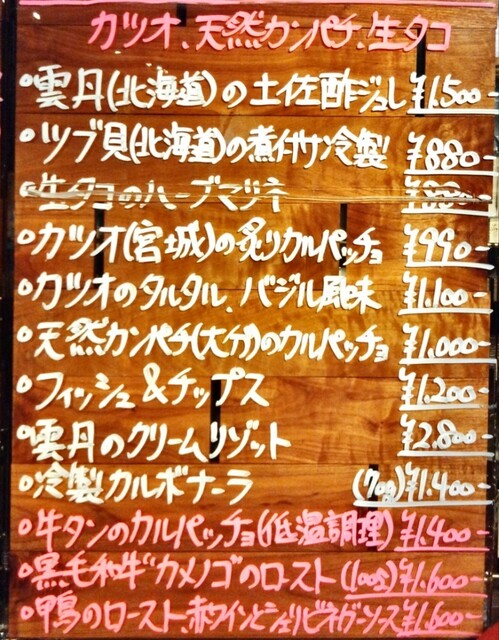 カツオ、天然カンパチ、生タコ
・雲丹(北海道)の土佐酢ジュレ ¥1.500-
・ツブ貝(北海道)の煮付け冷製 ¥880-
・生タコのハーブマリネ ¥880-
・カツオ(宮城)の炙りカルパッチョ ¥990-
・カツオのタルタル、バジル風味 ¥1.100-
・天然カンパチ(大分)のカルパッチョ ¥1.000-
・フィッシュ&チップス ¥1.200-
・雲丹のクリームリゾット ¥2.800-
・冷製カルボナーラ (70g)¥1.400-
・牛タンのカルパッチョ(低温調理) ¥1.400-
・黒毛和牛"カメノコ"のロースト(100g)¥1.600-
・鴨のロースト、赤ワインとシェリビネガーソース ¥1.600-